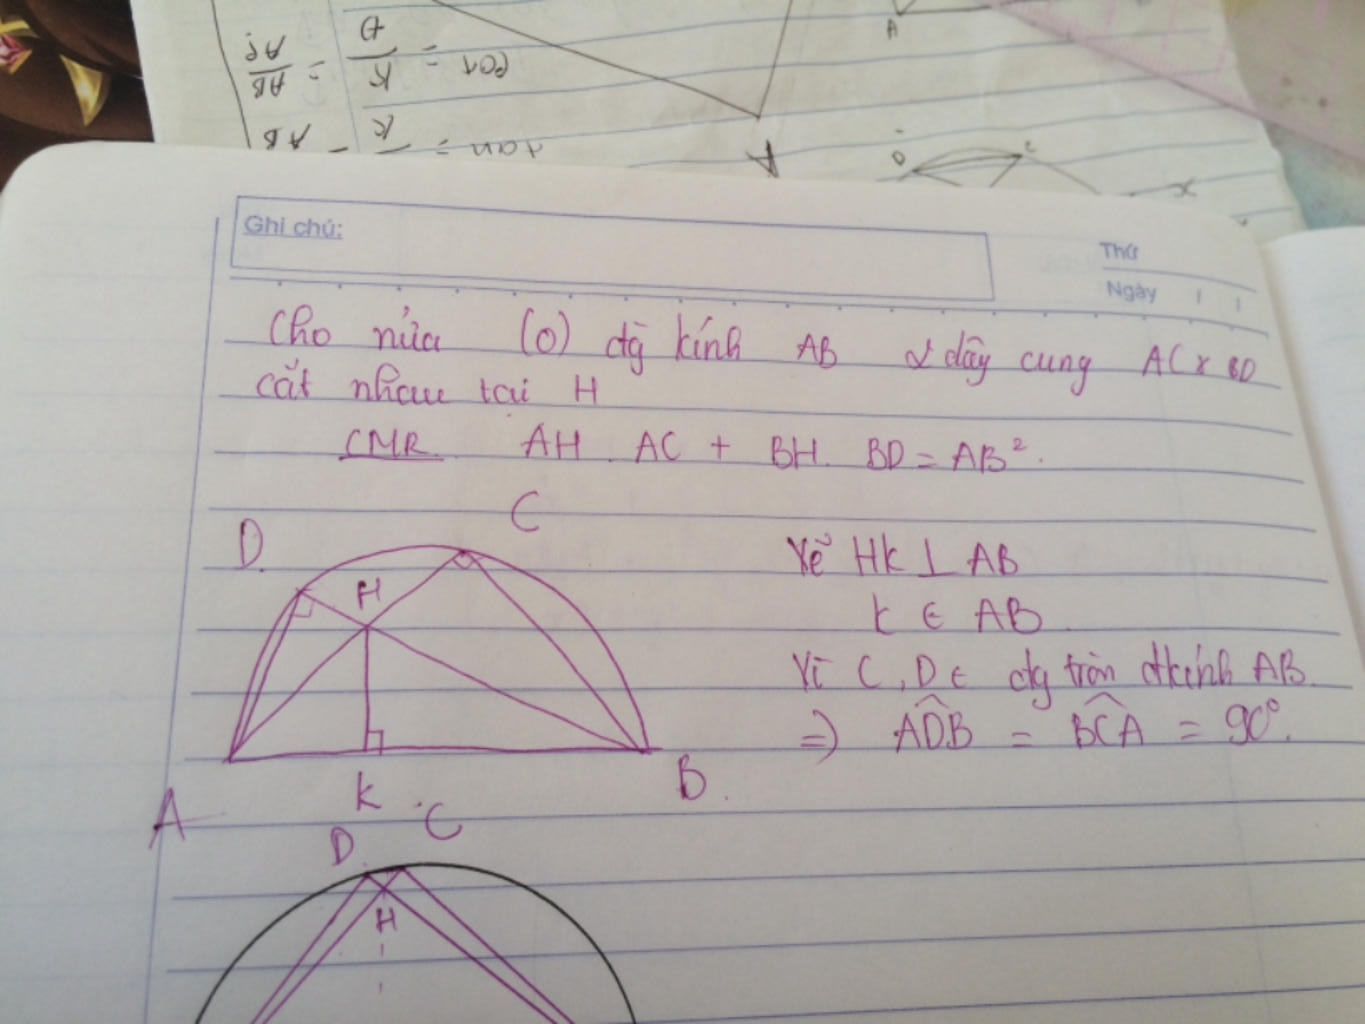 AB/AC = K/Đ =
AB K = tan
A
A
D
C
x
Ghi chú:
Thứ
Ngày / /
Cho nửa (O) đg kính AB 2 dây cung AC x BD
cắt nhau tại H
CMR AH . AC + BH . BD = AB².
C
D
H
Kẻ Hk ⊥ AB
k ∈ AB
Vì C, D ∈ đg tròn đkính AB
=> ADB = BCA = 90°.
A
k
B
D
C
H